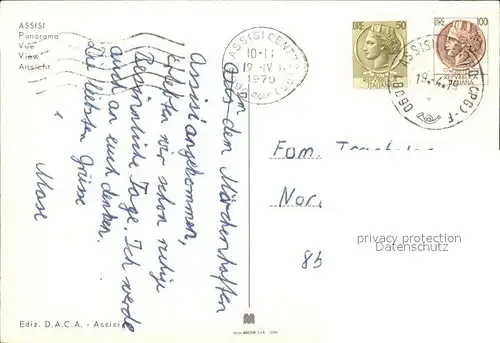 ASSISI
Panorama
Vue
View
Ansicht
ASSISI CENTRO
19 IV
1979
LIRE 50
LIRE 100
ASSISI
19.4.79
Aus dem Märchenhaften
Assisi angekommen,
erlebten wir schon ruhige
besinnliche Tage. Ich werde
auch an euch denken.
Die liebsten Grüsse
Fam.
Nor
85
privacy protection
Datenschutz
Ediz. D.A.C.A. - Assisi